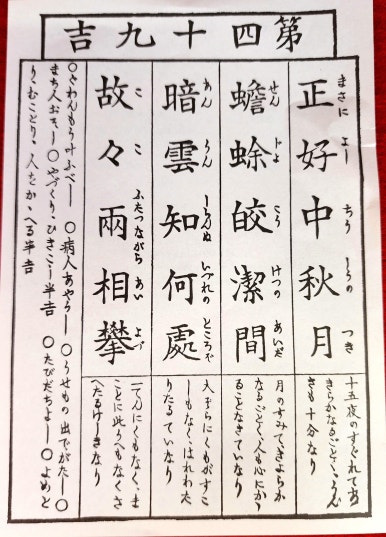 第四十九吉
まさに よし ちう しうの つき
正好中秋月
十五夜のすぐれてあ
きらかなるごとく、うん
きも十分なり
せん じよ こう けつの あいだ
蟾蜍皎潔間
月のすみてきよらか
なるごとく、人も心にかゝ
ることなきていなり
あん うん しらんぬ いづれの ところぞ
暗雲知何處
大ぞらにくもがすこ
しもなくはれわた
りたるていなり
こ こ ふたつながら あい よづ
故々兩相攀
一てんにくもなく、ま
ことに此うへもなくさ
へたるけしきなり
○ぐわんもう叶ふべし ○病人あやうし ○うせもの出でがたし○
まち人おそし ○やづくり、ひきこし半吉 ○たびだちよし○よめと
り、むことり、人をかゝへる半吉